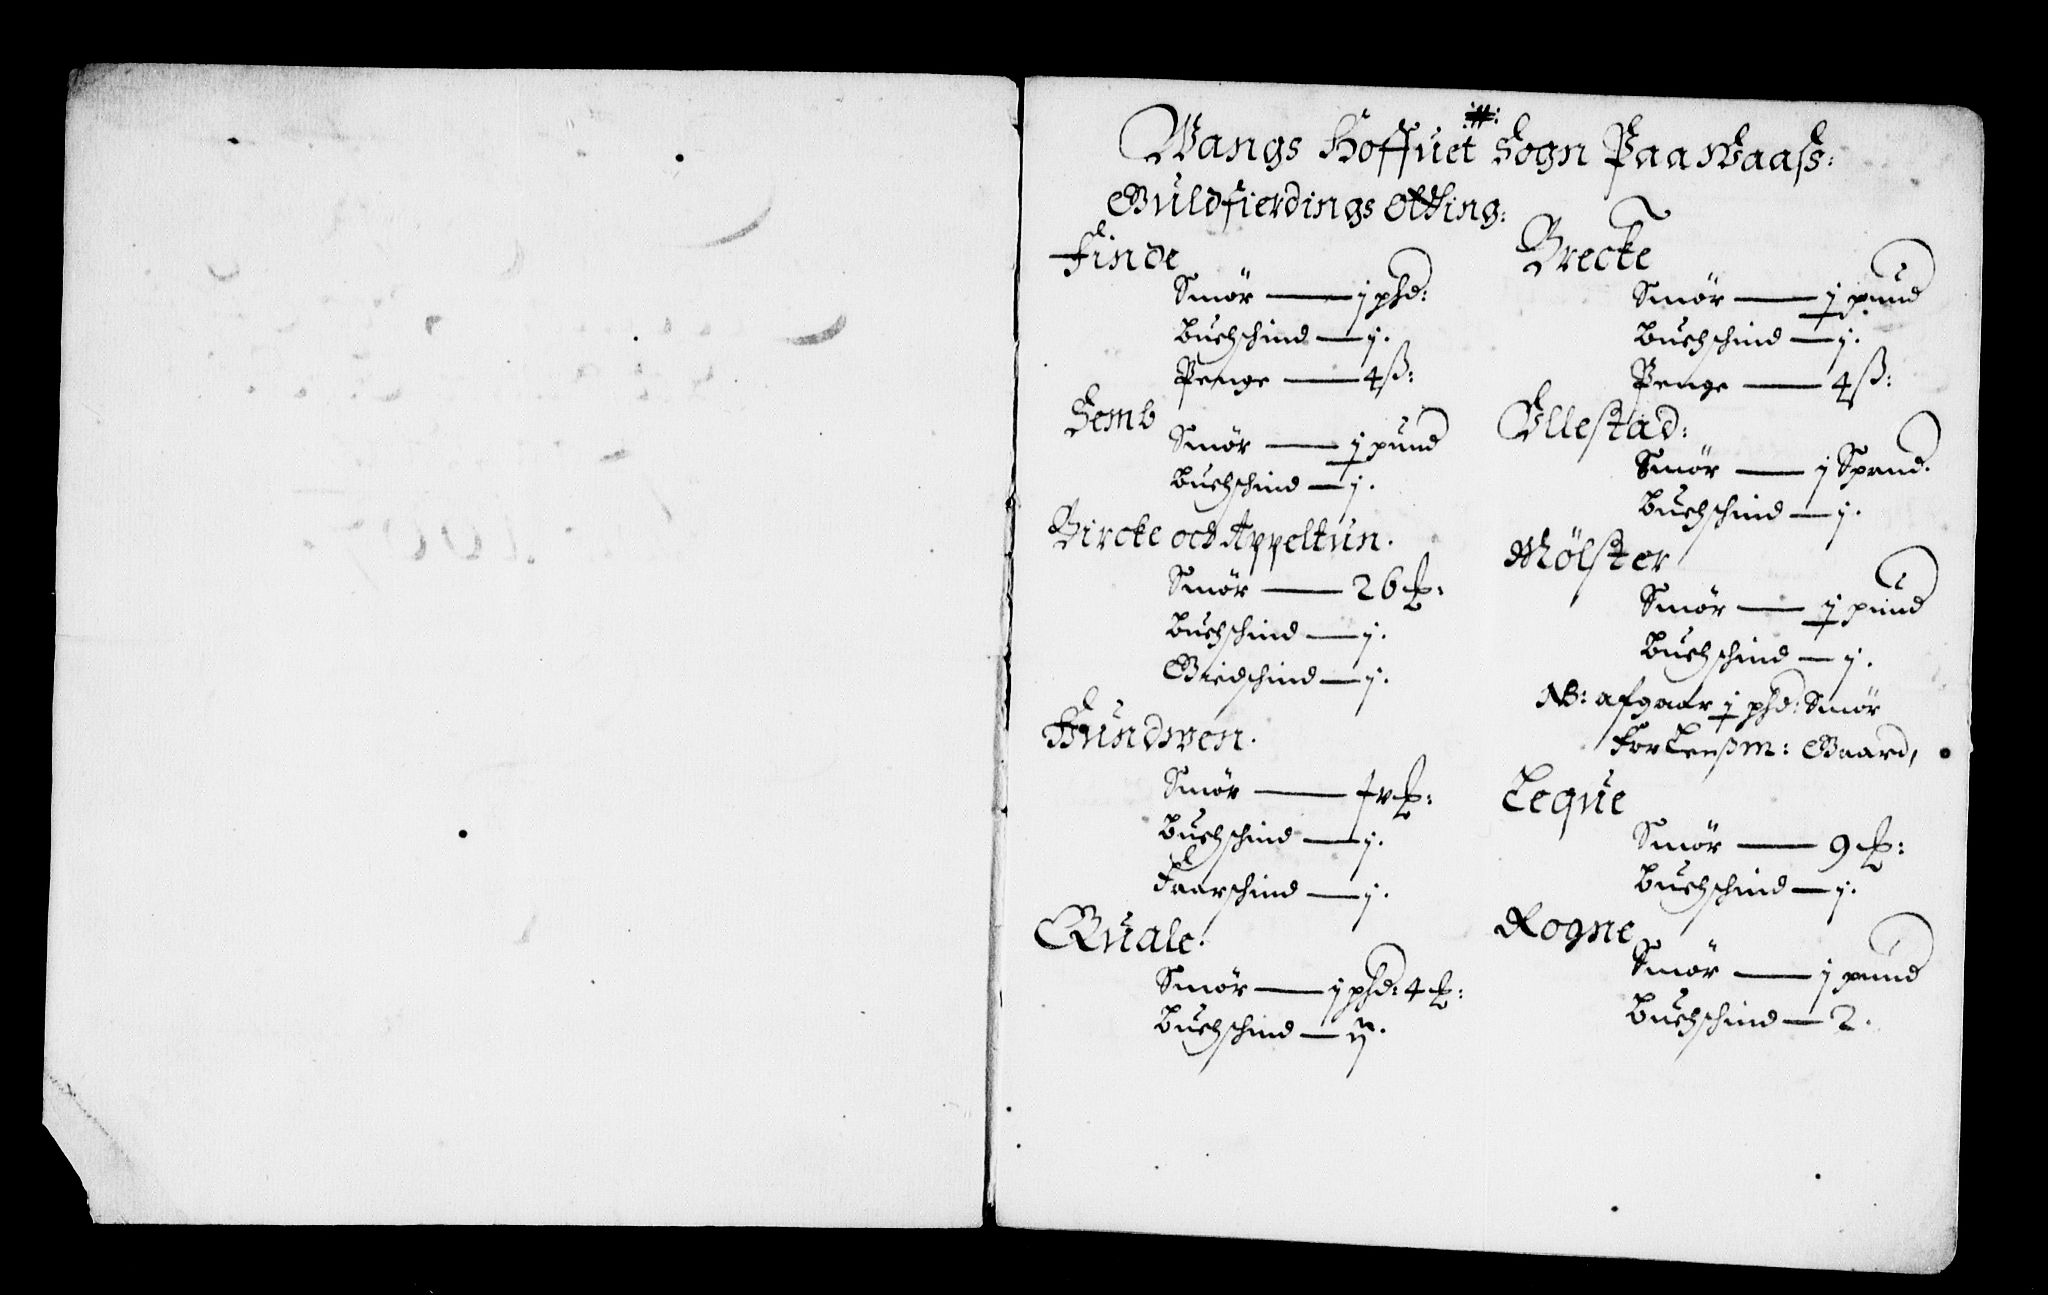 Wangs Hoffuet Sogn Paa Waaß:
Guldfierdings Otting:
Finde
Smör — j phd:
Buchschind — j.
Penge — 4 ß:
Semb
Smör — j pund
Buchschind — j.
Bircke och Appeltun.
Smör — 26
Buchschind — j.
Giedschind — j.
Hundwen.
Smör —
Buchschind — j.
Faarschind — j.
Quale.
Smör — j phd: 4
Buchschind — ij.
Brecke
Smör — j pund
Buchschind — j.
Penge — 4 ß:
Ullestad:
Smör — j Spand.
Buchschind — j.
Mölster
Smör — j pund
Buchschind — j.
NB: afgaar j phd: Smör
for Lenßm: Gaard,
Leque
Smör — 9
Buchschind — j.
Rogne
Smör — j pund
Buchschind — 2.